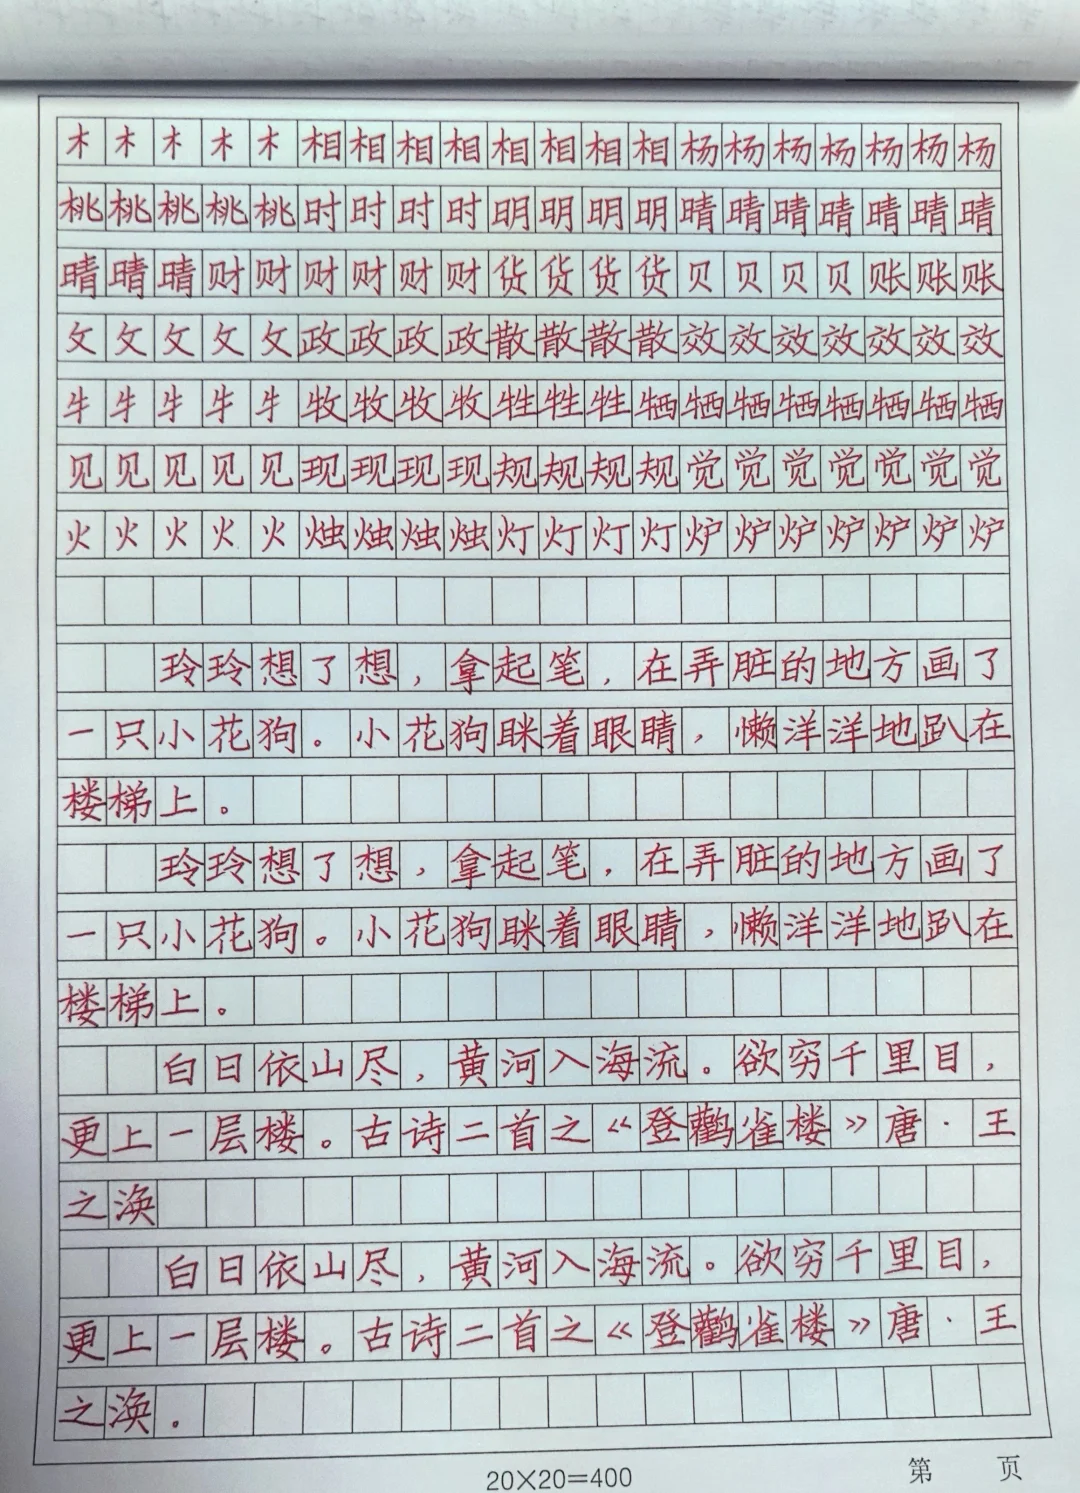 木木木木木相相相相相相相相杨杨杨杨杨杨杨
桃桃桃桃桃时时时时明明明明晴晴晴晴晴晴晴
晴晴晴财财财财财财货货货货贝贝贝贝账账账
攵攵攵攵攵政政政政散散散散效效效效效效效
牛牛牛牛牛牧牧牧牧牲牲牲牺牺牺牺牺牺牺牺
见见见见见现现现现规规规规觉觉觉觉觉觉觉
火火火火火烛烛烛烛灯灯灯灯炉炉炉炉炉炉炉
玲玲想了想，拿起笔，在弄脏的地方画了
一只小花狗。小花狗眯着眼睛，懒洋洋地趴在
楼梯上。
玲玲想了想，拿起笔，在弄脏的地方画了
一只小花狗。小花狗眯着眼睛，懒洋洋地趴在
楼梯上。
白日依山尽，黄河入海流。欲穷千里目，
更上一层楼。古诗二首之《登鹳雀楼》唐·王
之涣
白日依山尽，黄河入海流。欲穷千里目，
更上一层楼。古诗二首之《登鹳雀楼》唐·王
之涣。
20×20=400 第 页